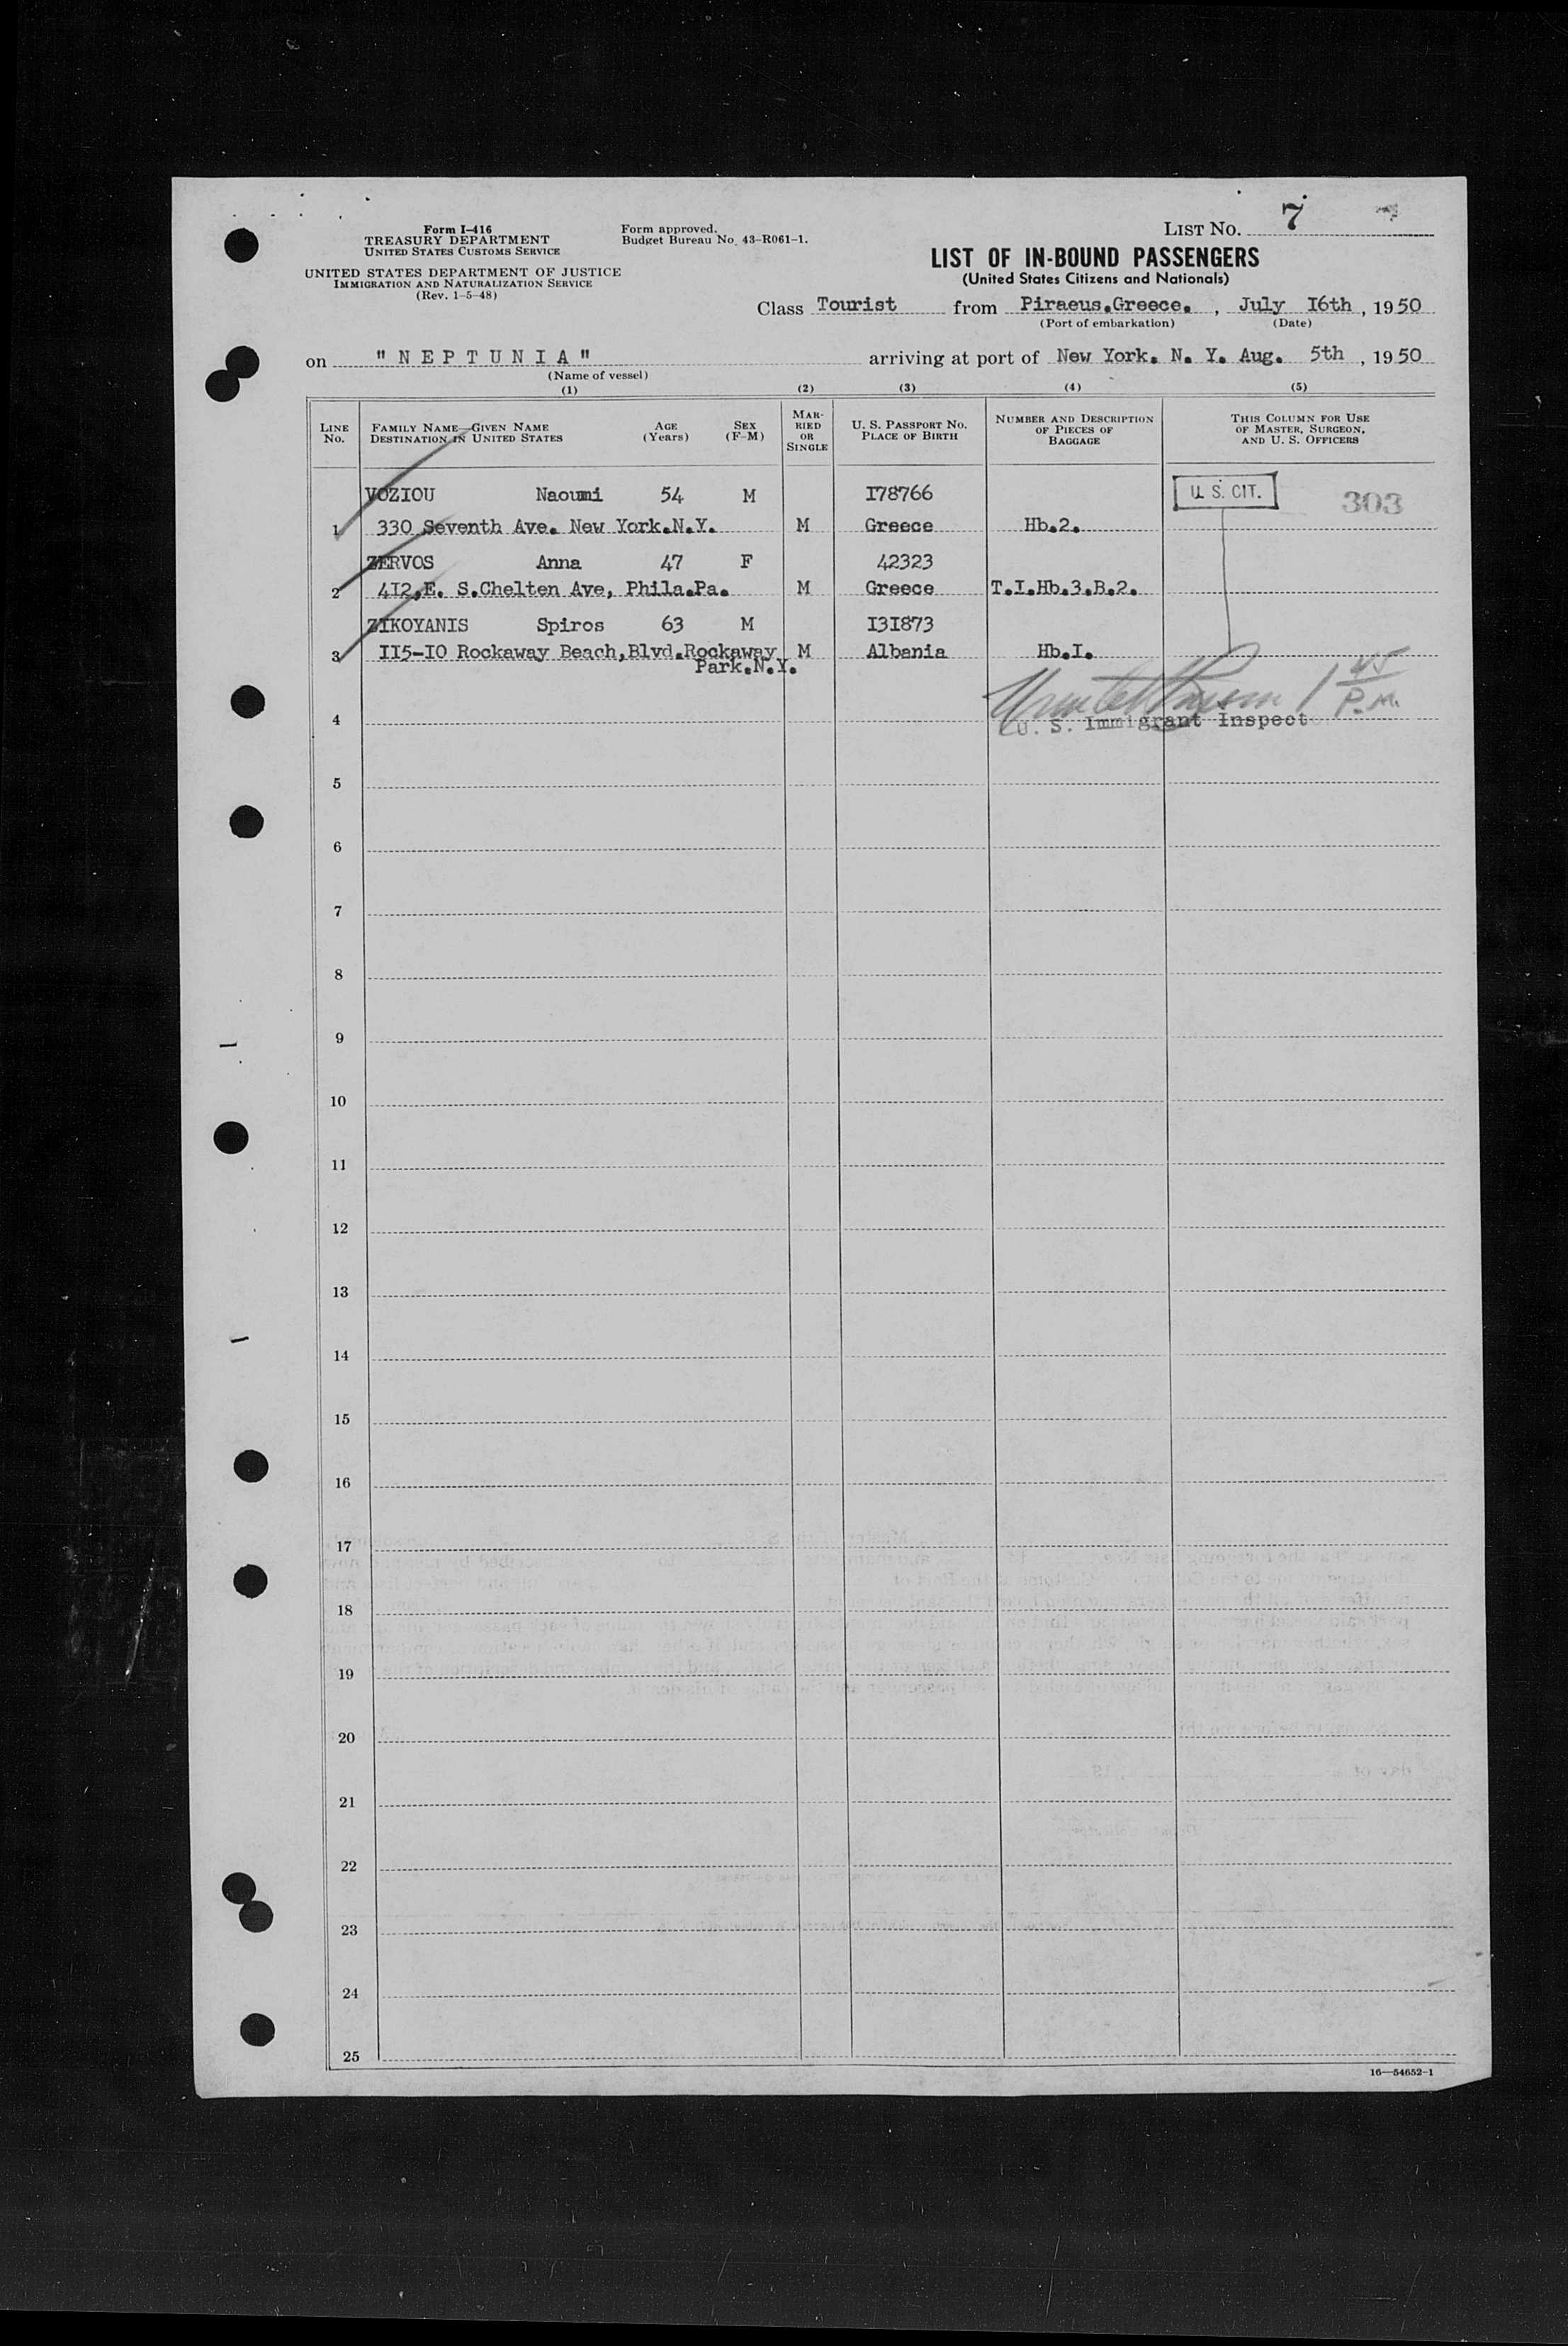 Form I-416
TREASURY DEPARTMENT
UNITED STATES CUSTOMS SERVICE
UNITED STATES DEPARTMENT OF JUSTICE
IMMIGRATION AND NATURALIZATION SERVICE
(Rev. 1-5-48)
Form approved.
Budget Bureau No. 43-R061-1.
LIST NO. 7
LIST OF IN-BOUND PASSENGERS
(United States Citizens and Nationals)
Class Tourist from Piraeus.Greece. , July I6th , 1950
(Port of embarkation) (Date)
on "NEPTUNIA" arriving at port of New York. N. Y. Aug. 5th , 1950
(Name of vessel)
(1) (2) (3) (4) (5)
LINE No. FAMILY NAME—GIVEN NAME DESTINATION IN UNITED STATES AGE (Years) SEX (F-M) MARRIED OR SINGLE U. S. PASSPORT No. PLACE OF BIRTH NUMBER AND DESCRIPTION OF PIECES OF BAGGAGE THIS COLUMN FOR USE OF MASTER, SURGEON, AND U. S. OFFICERS
VOZIOU Naoumi 54 M I78766 U. S. CIT. 303
1 330 Seventh Ave. New York.N.Y. M Greece Hb.2.
ZERVOS Anna 47 F 42323
2 4I2,E. S.Chelten Ave, Phila.Pa. M Greece T.I.Hb.3.B.2.
ZIKOYANIS Spiros 63 M I3I873
3 II5-IO Rockaway Beach,Blvd.Rockaway M Albania Hb.I.
Park.N.Y.
1 45 P.M.
4 U. S. Immigrant Inspect
5
6
7
8
9
10
11
12
13
14
15
16
17
18
19
20
21
22
23
24
25
16—54652-1